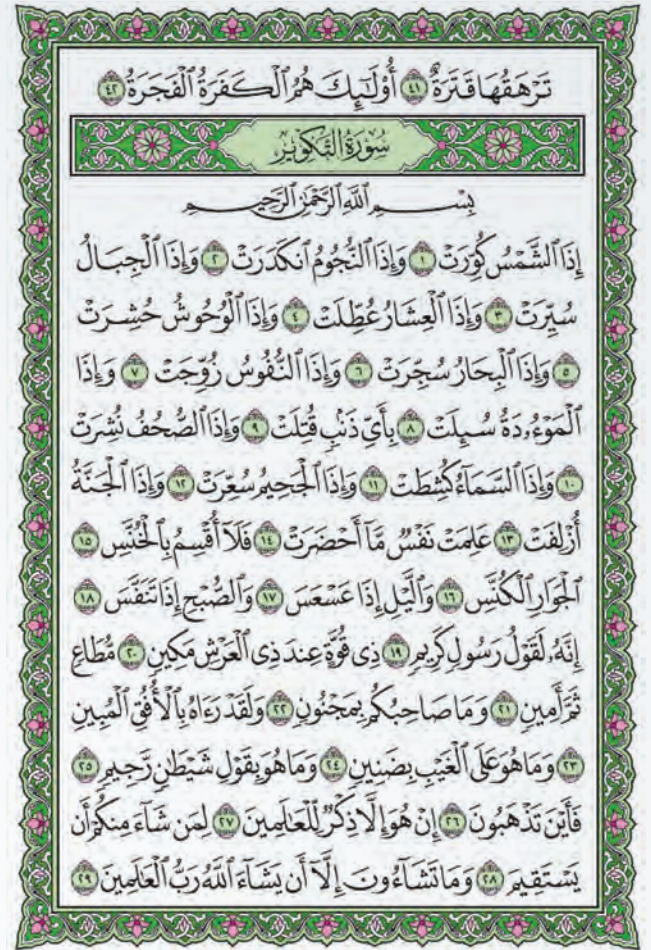 تَرْهَقُهَا قَتَرَةٌ ٤١ أُوْلَـٰٓئِكَ هُمُ ٱلْكَفَرَةُ ٱلْفَجَرَةُ ٤٢
سُورَةُ التَّكْوِيرِ
بِسْمِ ٱللَّهِ ٱلرَّحْمَـٰنِ ٱلرَّحِيمِ
إِذَا ٱلشَّمْسُ كُوِّرَتْ ١ وَإِذَا ٱلنُّجُومُ ٱنكَدَرَتْ ٢ وَإِذَا ٱلْجِبَالُ
سُيِّرَتْ ٣ وَإِذَا ٱلْعِشَارُ عُطِّلَتْ ٤ وَإِذَا ٱلْوُحُوشُ حُشِرَتْ
٥ وَإِذَا ٱلْبِحَارُ سُجِّرَتْ ٦ وَإِذَا ٱلنُّفُوسُ زُوِّجَتْ ٧ وَإِذَا
ٱلْمَوْءُۥدَةُ سُئِلَتْ ٨ بِأَىِّ ذَنۢبٍ قُتِلَتْ ٩ وَإِذَا ٱلصُّحُفُ نُشِرَتْ
١٠ وَإِذَا ٱلسَّمَآءُ كُشِطَتْ ١١ وَإِذَا ٱلْجَحِيمُ سُعِّرَتْ ١٢ وَإِذَا ٱلْجَنَّةُ
أُزْلِفَتْ ١٣ عَلِمَتْ نَفْسٌ مَّآ أَحْضَرَتْ ١٤ فَلَآ أُقْسِمُ بِٱلْخُنَّسِ ١٥
ٱلْجَوَارِ ٱلْكُنَّسِ ١٦ وَٱلَّيْلِ إِذَا عَسْعَسَ ١٧ وَٱلصُّبْحِ إِذَا تَنَفَّسَ ١٨
إِنَّهُۥ لَقَوْلُ رَسُولٍ كَرِيمٍ ١٩ ذِى قُوَّةٍ عِندَ ذِى ٱلْعَرْشِ مَكِينٍ ٢٠ مُّطَاعٍ
ثَمَّ أَمِينٍ ٢١ وَمَا صَاحِبُكُم بِمَجْنُونٍ ٢٢ وَلَقَدْ رَءَاهُ بِٱلْأُفُقِ ٱلْمُبِينِ
٢٣ وَمَا هُوَ عَلَى ٱلْغَيْبِ بِضَنِينٍ ٢٤ وَمَا هُوَ بِقَوْلِ شَيْطَـٰنٍ رَّجِيمٍ ٢٥
فَأَيْنَ تَذْهَبُونَ ٢٦ إِنْ هُوَ إِلَّا ذِكْرٌ لِّلْعَـٰلَمِينَ ٢٧ لِمَن شَآءَ مِنكُمْ أَن
يَسْتَقِيمَ ٢٨ وَمَا تَشَآءُونَ إِلَّآ أَن يَشَآءَ ٱللَّهُ رَبُّ ٱلْعَـٰلَمِينَ ٢٩